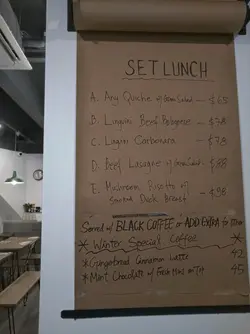 SET LUNCH
A. Any Quiche w/ Green Salad — $68
B. Linguini Beef Bolognese — $78
C. Linguini Carbonara — $78
D. Beef Lasagne w/ Green Salad — $88
E. Mushroom Risotto w/
Smoked Duck Breast — $98
Served w/ BLACK COFFEE or ADD EXTRA to
* Winter Special Coffee *
* Gingerbread Cinnamon Latte 42
* Mint Chocolate w/ Fresh Mint 45